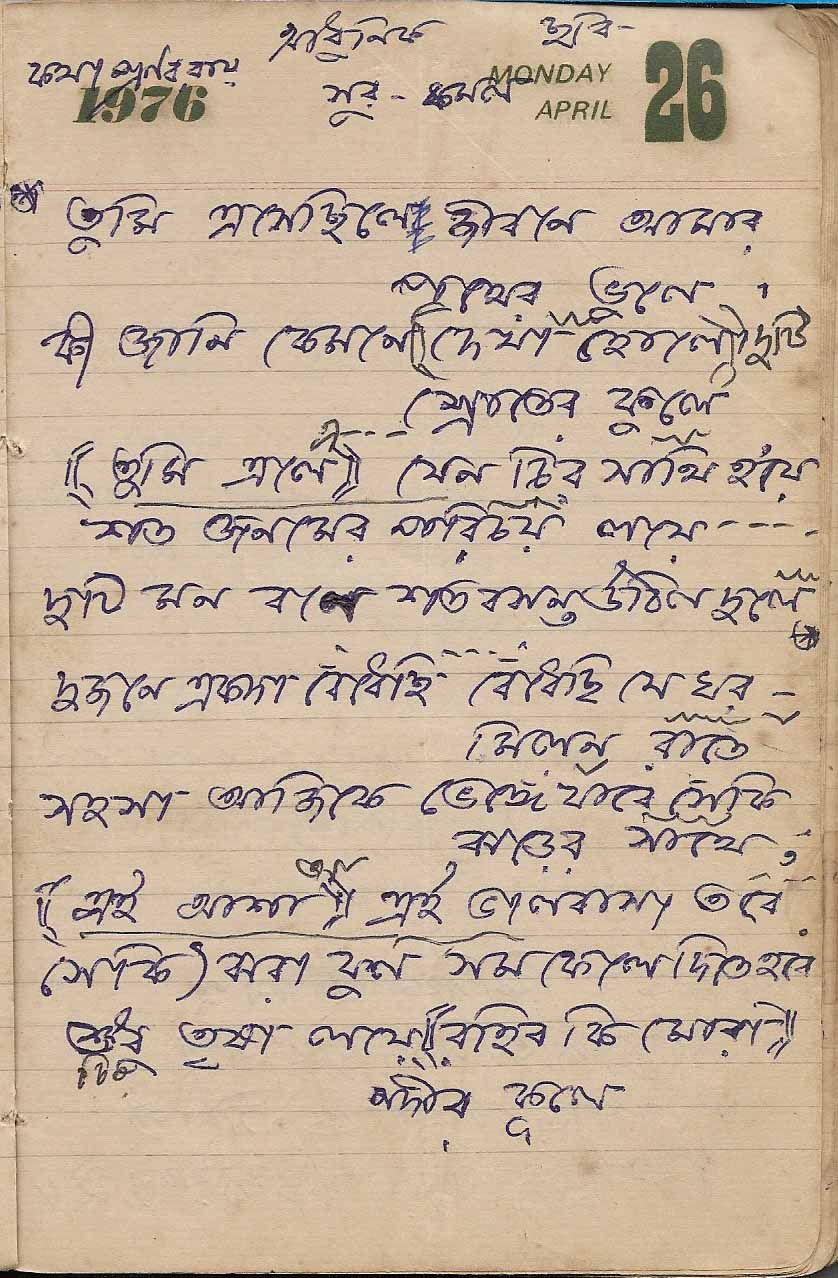 আধুনিক ছবি-
কথা প্রণব রায়
1976
সুর - কমল
MONDAY
APRIL
26
তুমি এসেছিলে জীবনে আমার
পথের ভুলে
কী জানি কেমনে (দেখা হোলো) দুটি
স্রোতের ফুলে
((তুমি এলে)) যেন চির সাথি হয়ে
শত জনমের পরিচয় লয়ে ----
দুটি মন বনে শত বসন্ত উঠিল দুলে
দুজনে একদা বেঁধেছি বেঁধেছি যে ঘর -
মিলন রাতে
সহসা আজিকে ভেঙ্গে যাবে সেকি
ঝড়ের সাথে
((এই আশা)) এই ভালবাসা তবে
সেকি) ঝরা ফুল সম ফেলে দিতে হবে
শুধু তৃষা লয়ে ((রহিব কি মোরা))
চির
নদীর কূলে